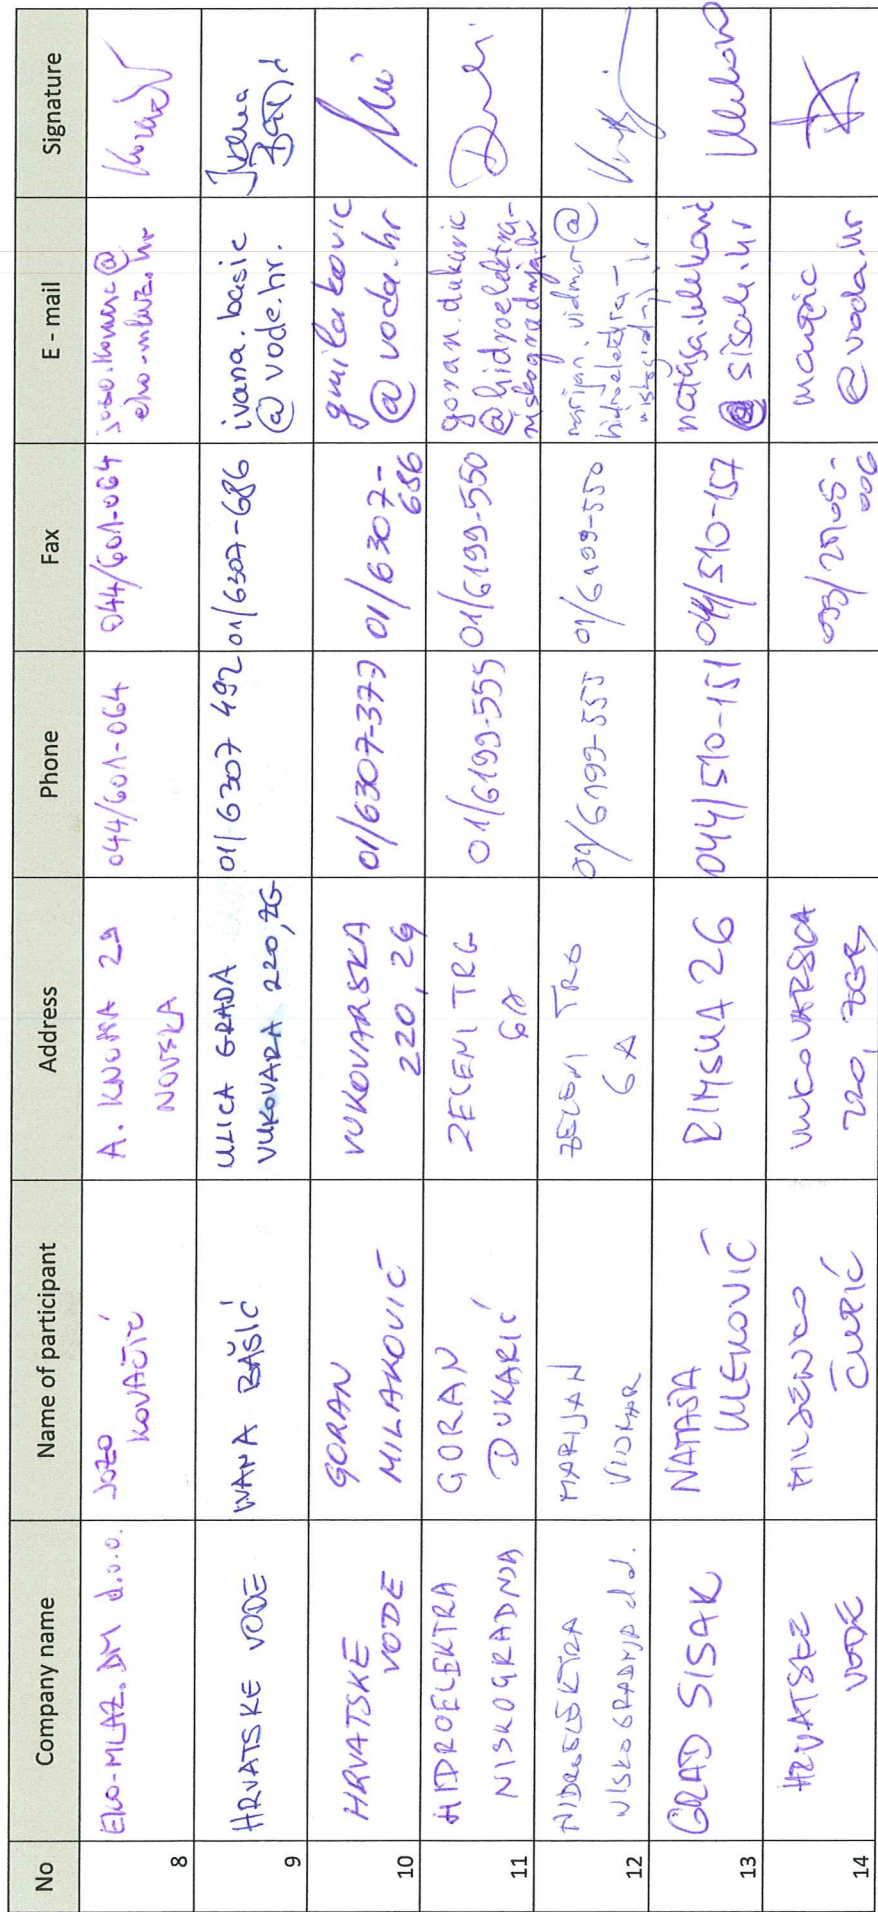 No
Company name
Name of participant
Address
Phone
Fax
E - mail
Signature
8
EKO-MLAZ. DM d.o.o.
JOZO
KOVAČIĆ
A. KNOPA 29
NOVSKA
044/601-064
044/601-064
eko-mlaz.hr
9
HRVATSKE VODE
IVANA BAŠIĆ
ULICA GRADA
VUKOVARA 220, ZG
01/6307 492
01/6307-686
ivana.basic
@vode.hr.
Ivana
Bašić
10
HRVATSKE
VODE
GORAN
MILAKOVIĆ
VUKOVARSKA
220, ZG
01/6307-377
01/6307-
686
gmilakovic
@voda.hr
11
HIDROELEKTRA
NISKOGRADNJA
GORAN
DUKARIĆ
ZELENI TRG
6A
01/6199-555
01/6199-550
goran.dukaric
@hidroelektra-
niskogradnja.hr
12
HIDROELEKTRA
NISKOGRADNJA d.d.
MARIJAN
VIDMAR
ZELENI TRG
6A
01/6199-555
01/6199-550
marijan.vidmar@
hidroelektra-
niskogradnja.hr
13
GRAD SISAK
NATAŠA
ULEKOVIĆ
RIMSKA 26
044/510-151
044/510-157
natasa.ulekovic
@sisak.hr
14
HRVATSKE
VODE
MILJENKO
VUKOVARSKA
220, ZGB
@voda.hr